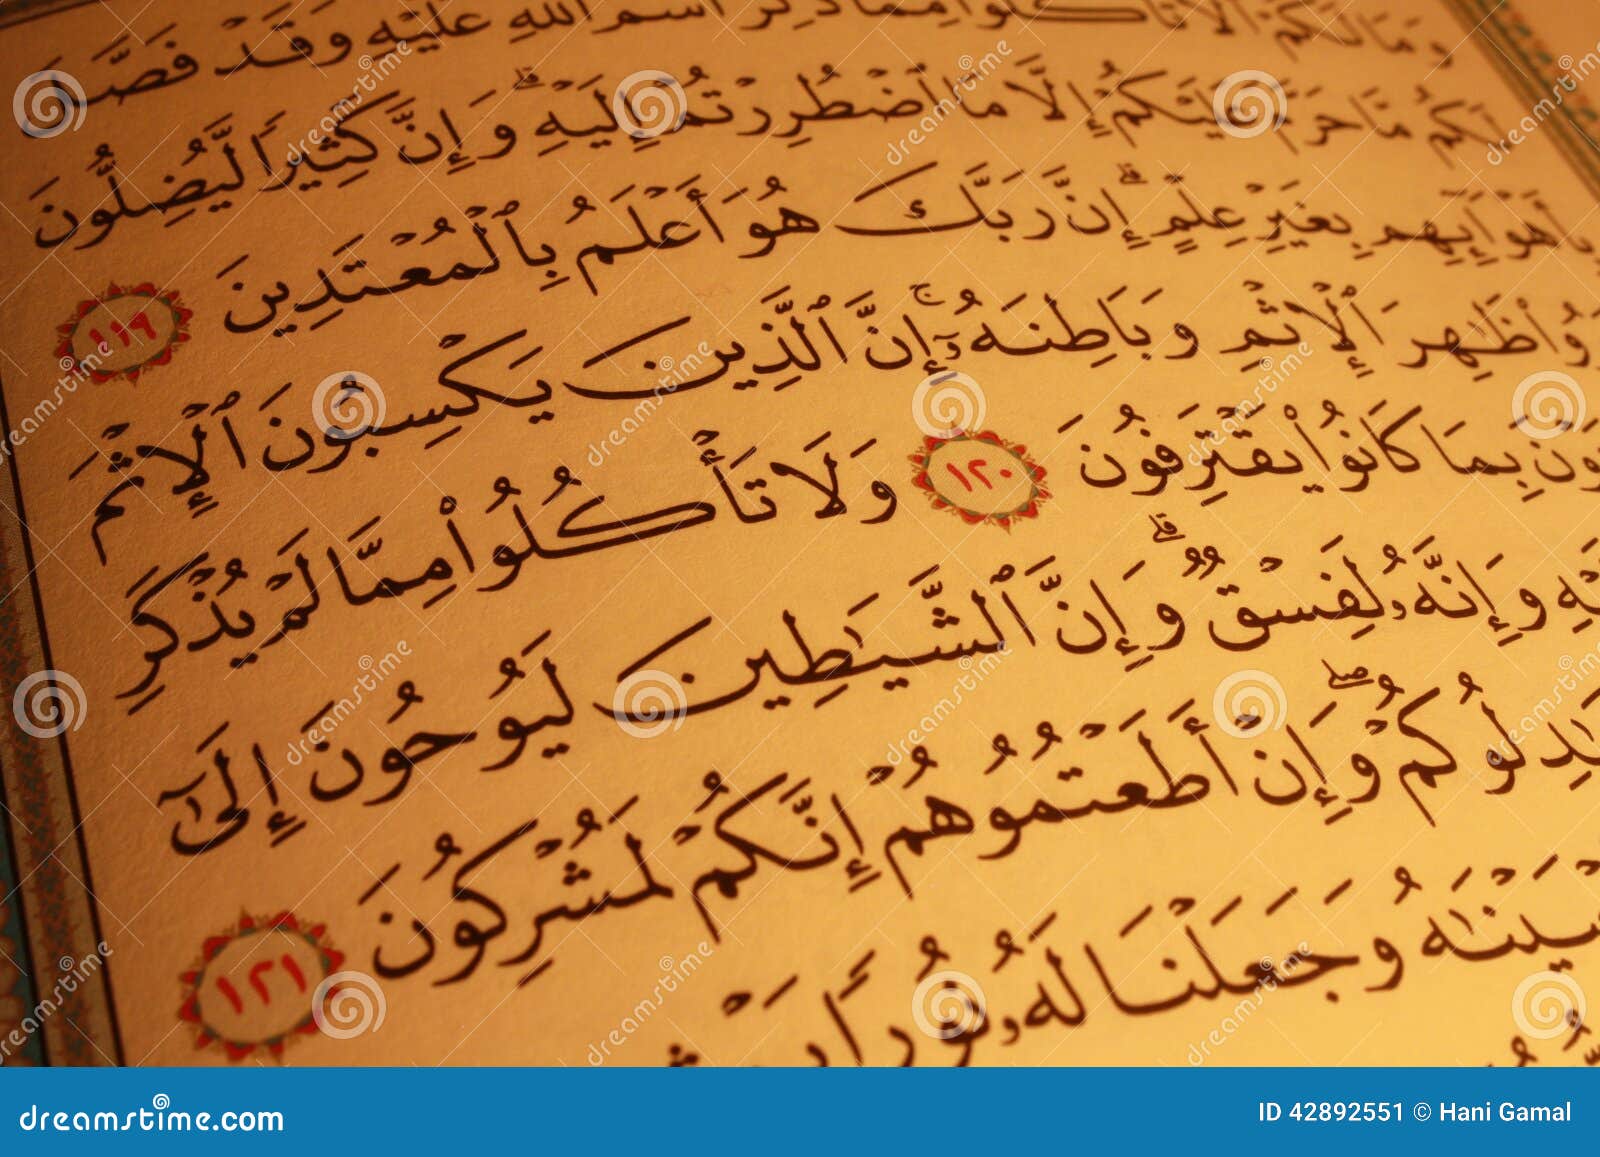 وَمَا لَكُمْ أَلَّا تَأْكُلُوا۟ مِمَّا ذُكِرَ ٱسْمُ ٱللَّهِ عَلَيْهِ وَقَدْ فَصَّلَ
لَكُم مَّا حَرَّمَ عَلَيْكُمْ إِلَّا مَا ٱضْطُرِرْتُمْ إِلَيْهِ ۗ وَإِنَّ كَثِيرًا لَّيُضِلُّونَ
بِأَهْوَآئِهِم بِغَيْرِ عِلْمٍ ۗ إِنَّ رَبَّكَ هُوَ أَعْلَمُ بِٱلْمُعْتَدِينَ ١١٩
وَظَٰهِرَ ٱلْإِثْمِ وَبَاطِنَهُۥٓ ۚ إِنَّ ٱلَّذِينَ يَكْسِبُونَ ٱلْإِثْمَ
وْنَ بِمَا كَانُوا۟ يَقْتَرِفُونَ ١٢٠ وَلَا تَأْكُلُوا۟ مِمَّا لَمْ يُذْكَرِ
يْهِ وَإِنَّهُۥ لَفِسْقٌ ۗ وَإِنَّ ٱلشَّيَٰطِينَ لَيُوحُونَ إِلَىٰٓ
دِلُوكُمْ ۖ وَإِنْ أَطَعْتُمُوهُمْ إِنَّكُمْ لَمُشْرِكُونَ ١٢١
يَيْنَٰهُ وَجَعَلْنَا لَهُۥ نُورًا
dreamstime.com
ID 42892551 © Hani Gamal